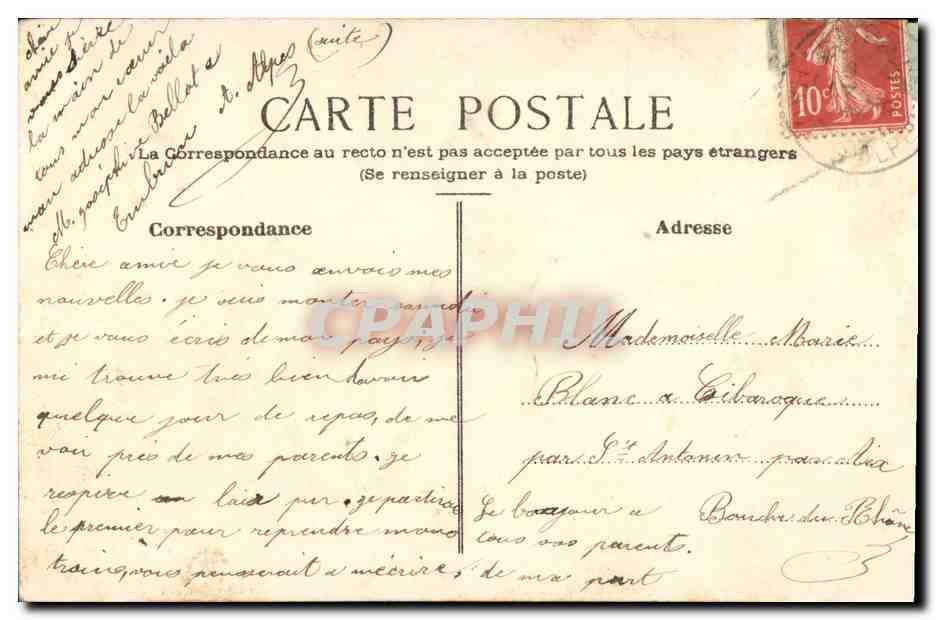 chère
amie je
vous serre
la main de
tous mon cœur
mon adresse la voila
M. Joséphine Bellot a
Embrun H. Alpes (suite)
10c POSTES
CARTE POSTALE
La Correspondance au recto n'est pas acceptée par tous les pays étrangers
(Se renseigner à la poste)
Correspondance
Chère amie je vous envois mes
nouvelles. je suis monter samedi
et je vous écris de mon pays, je
mi trouve très bien davoir
quelque jour de repos, de me
voir près de mes parents. je
respire un lair pur. je partirai
le premier pour reprendre mons
train, vous penserait a mécrire,
Le bonjour a
tous vos parent.
de ma part
Adresse
Mademoiselle Marie
Blanc a Cibaroque
par St Antonin par Aix
Bouche du Rhône
CPAPHIL